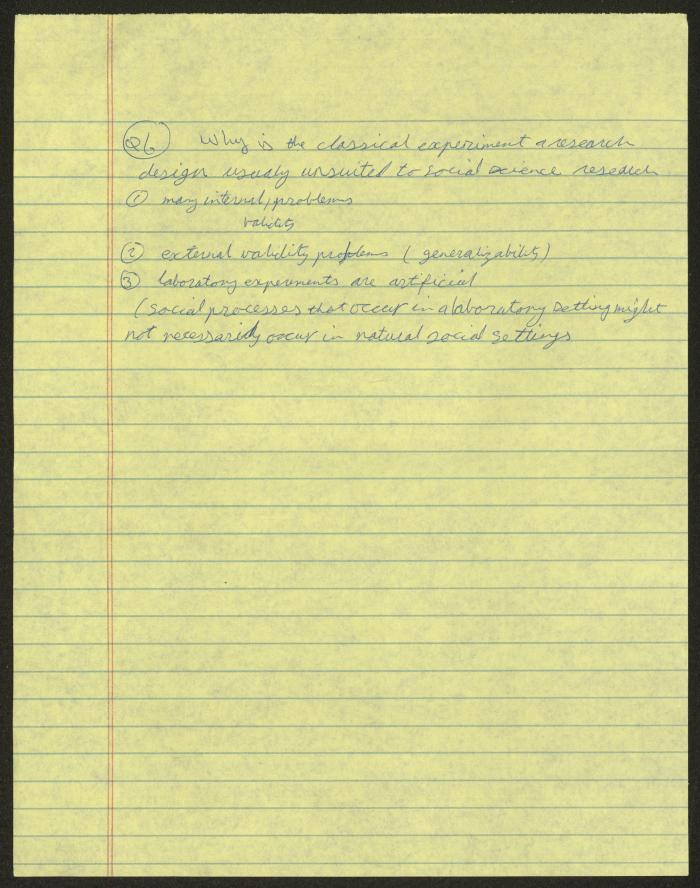 Q6 Why is the classical experiment a research
design usualy unsuited to social science research
① many internal, problems
validity
② external validity problems (generalizability)
③ laboratory experiments are artificial
(social processes that occur in a laboratory setting might
not necessarily occur in natural social settings